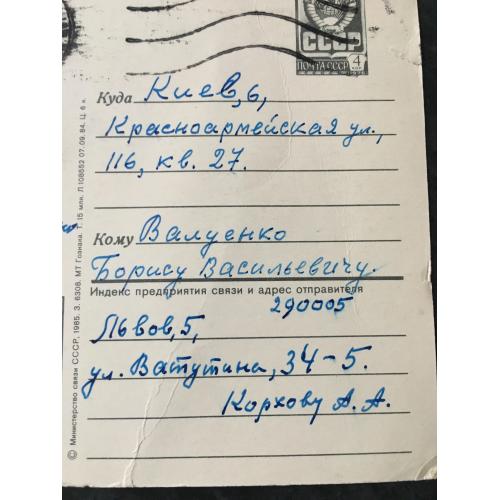 СССР
ПОЧТА СССР 4 КОП
Куда Киев, 6,
Красноармейская ул.,
116, кв. 27.
Кому Валуенко
Борису Васильевичу.
Индекс предприятия связи и адрес отправителя
290005
Львов, 5,
ул. Ватутина, 34-5.
Корхову А. А.
© Министерство связи СССР, 1985. З. 6308. МТ Гознака. Т. 15 млн. Л 108552 07. 09. 84. Ц. 6 к.